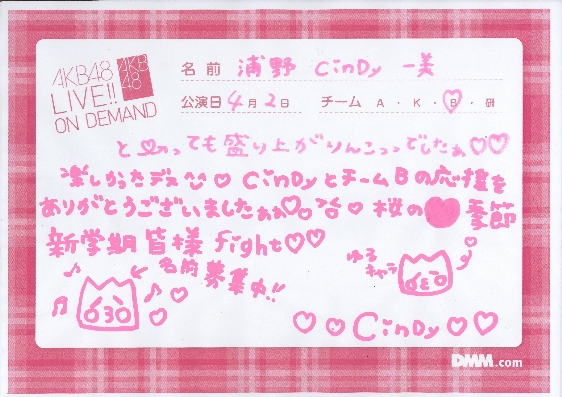 AKB48
LIVE!!
ON DEMAND
AKB
48
名前 浦野 CinDy 一美
公演日 4月2日 チーム A・K・B・研
とぉっても盛り上がりんこっっでしたぁ♡♡
楽しかったデス^^♡ CinDyとチームBの応援を
ありがとうございましたぁぁ♡ 桜の♥季節
新学期皆様 fight♡♡
名前募集中!!
ゆる
キャラ
♡♡CinDy♡♡
DMM.com